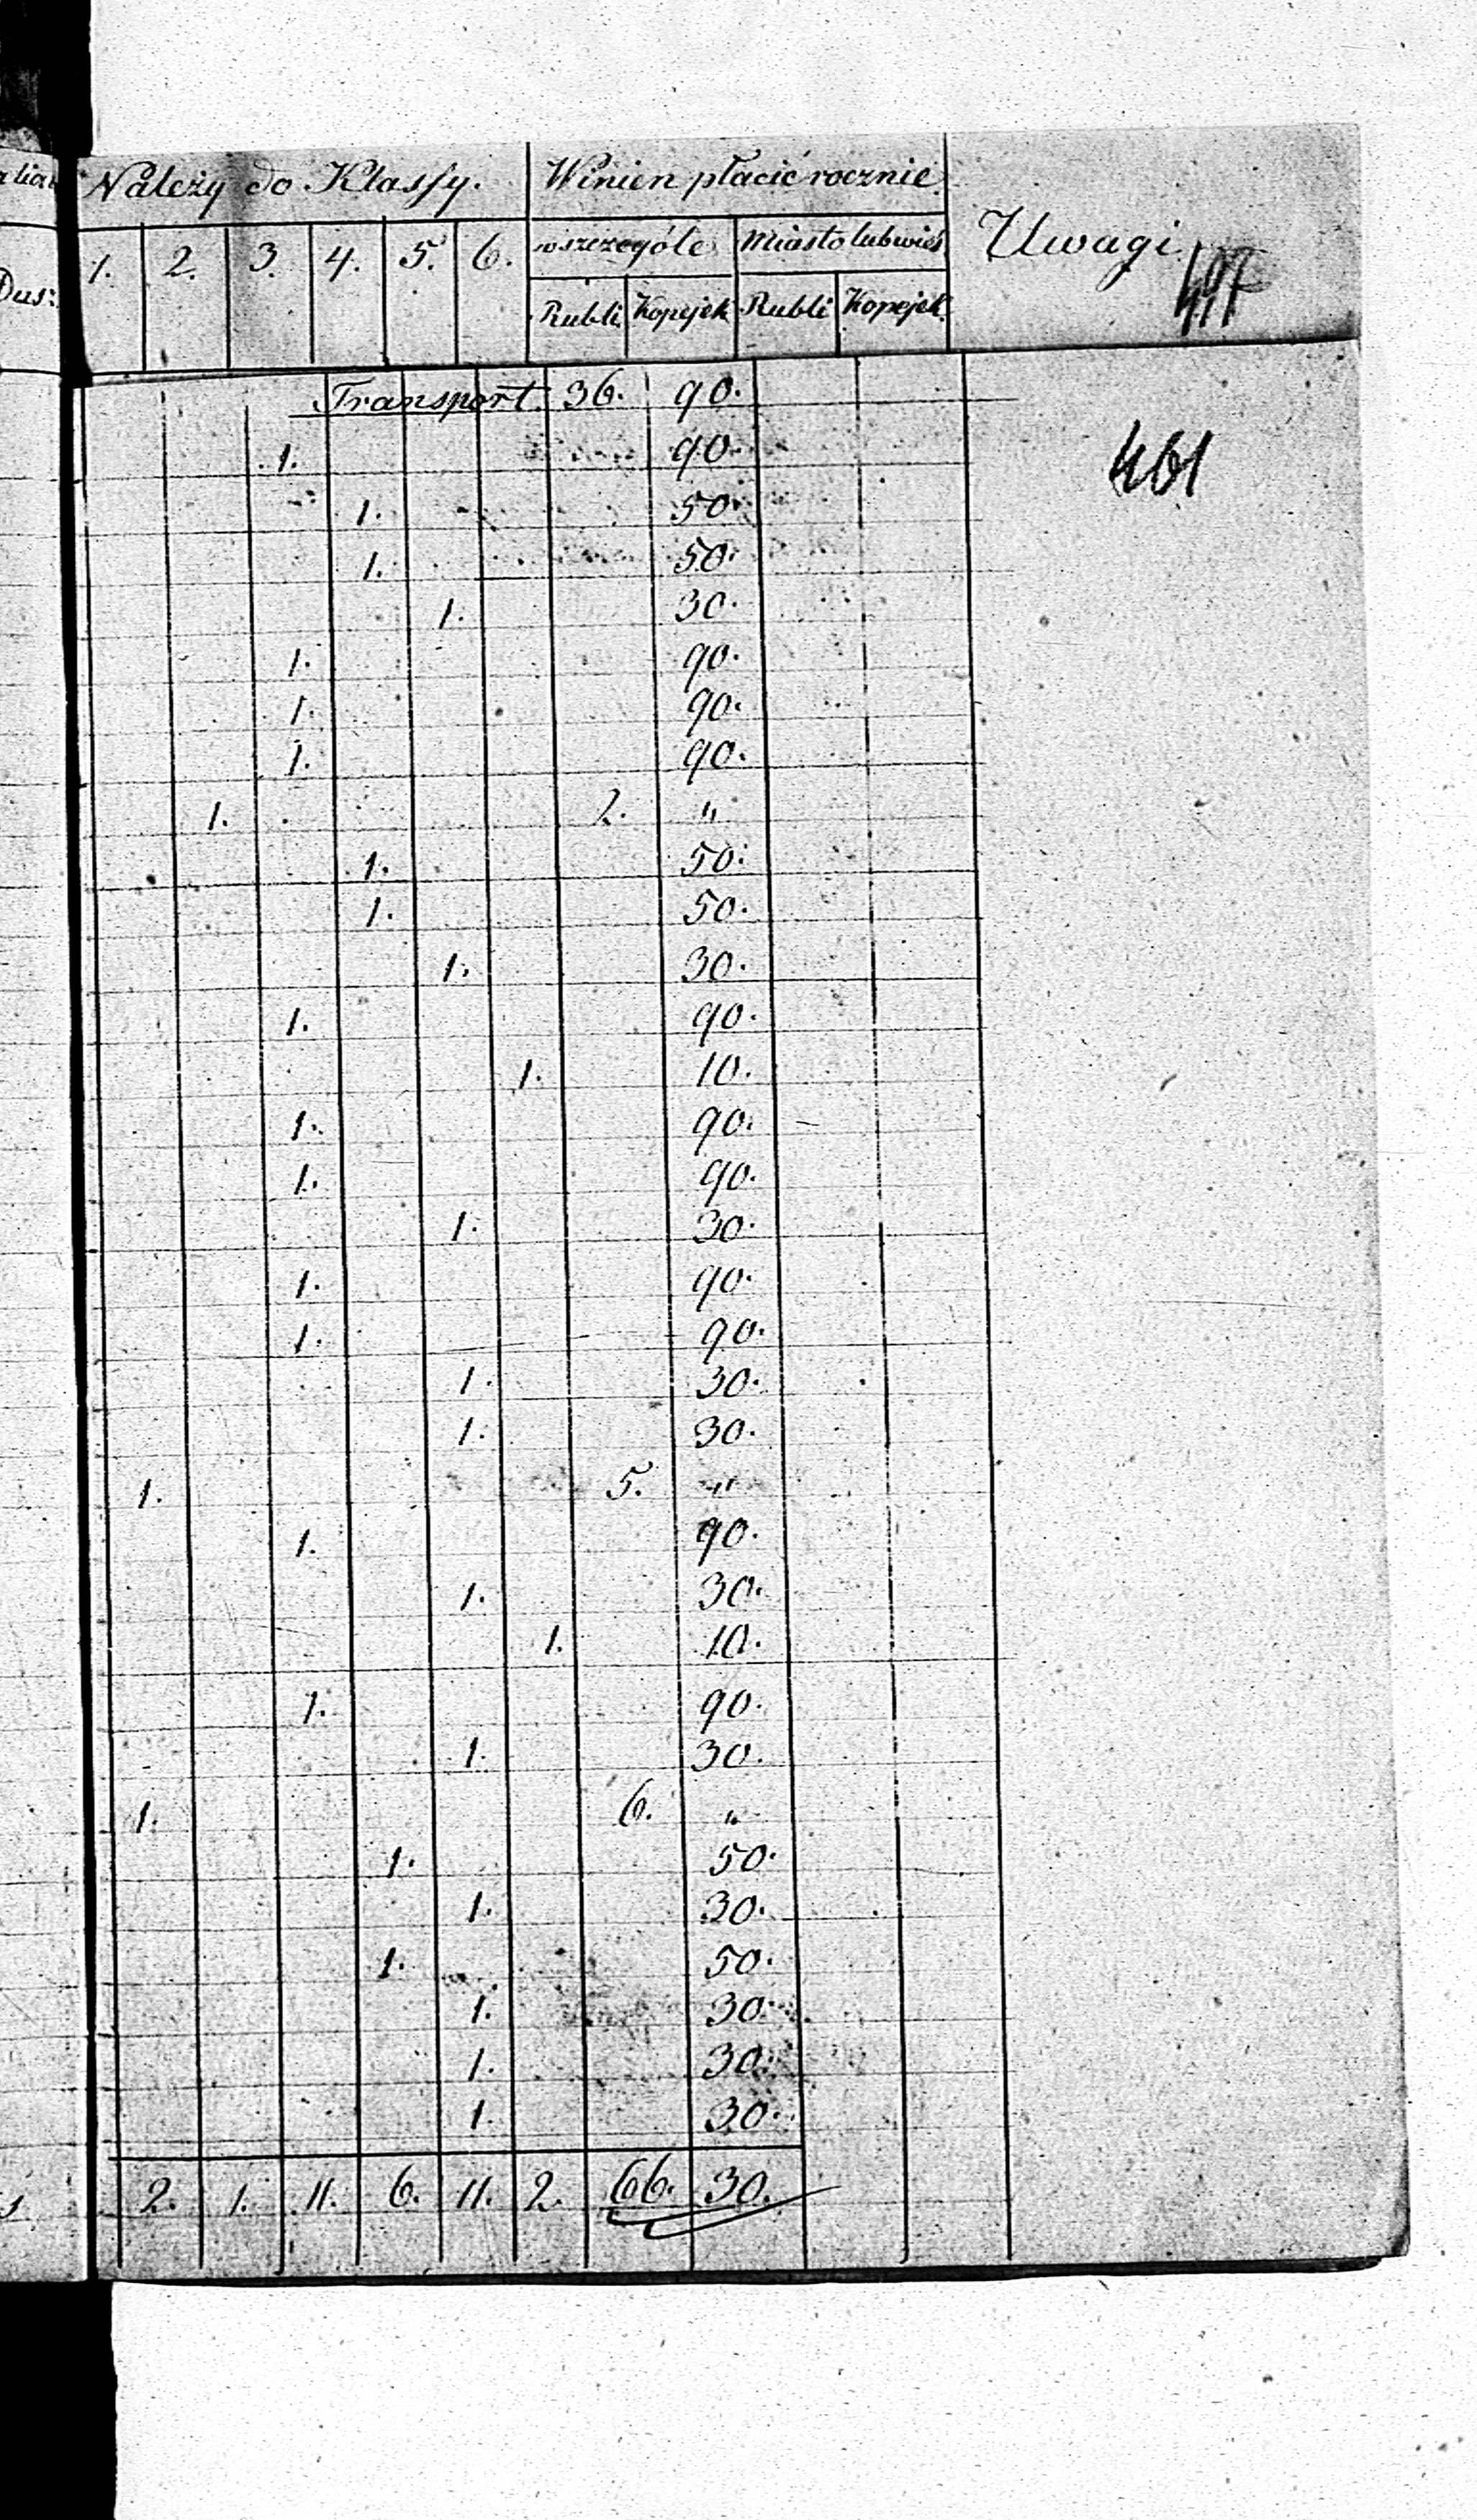 Należy do Klassy. Winien płacić rocznie Uwagi
1. 2. 3. 4. 5. 6. wszczególe Miasto lub wieś
Dusz
Rubli Kopejek Rubli Kopejek
Transport. 36. 90.
1. 90.
461
1. 50.
1. 50.
1. 30.
1. 90.
1. 90.
1. 90.
1. 2. "
1. 50.
1. 50.
1. 30.
1. 90.
1. 10.
1. 90.
1. 90.
1. 30.
1. 90.
1. 90.
1. 30.
1. 30.
1. 5. "
1. 90.
1. 30.
1. 10.
1. 90.
1. 30.
1. 6. "
1. 50.
1. 30.
1. 50.
1. 30.
1. 30.
1. 30.
2. 1. 11. 6. 11. 2. 66. 30.